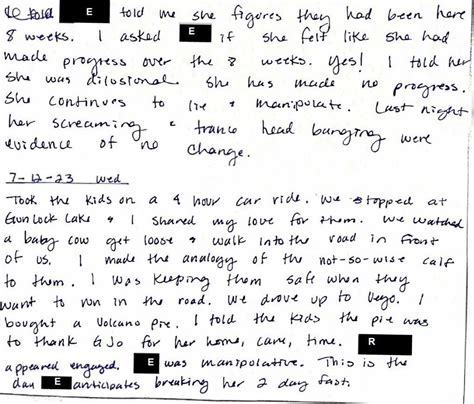 told E told me she figures they had been here
8 weeks. I asked E if she felt like she had
made progress over the 8 weeks. Yes! I told her
she was dilosional. She has made no progress.
She continues to lie & manipulate. Last night
her screaming & trance head banging were
evidence of no change.
7-12-23 Wed
Took the kids on a 4 hour car ride. We stopped at
Gunlock Lake & I shared my love for them. We watched
a baby cow get loose & walk into the road in front
of us. I made the analogy of the not-so-wise calf
to them. I was keeping them safe when they
want to run in the road. We drove up to Vego. I
bought a Volcano Pie. I told the kids the pie was
to thank G Jo for her home, care, time. R
appeared engaged. E was manipulative. This is the
day E anticipates breaking her 2 day fast.